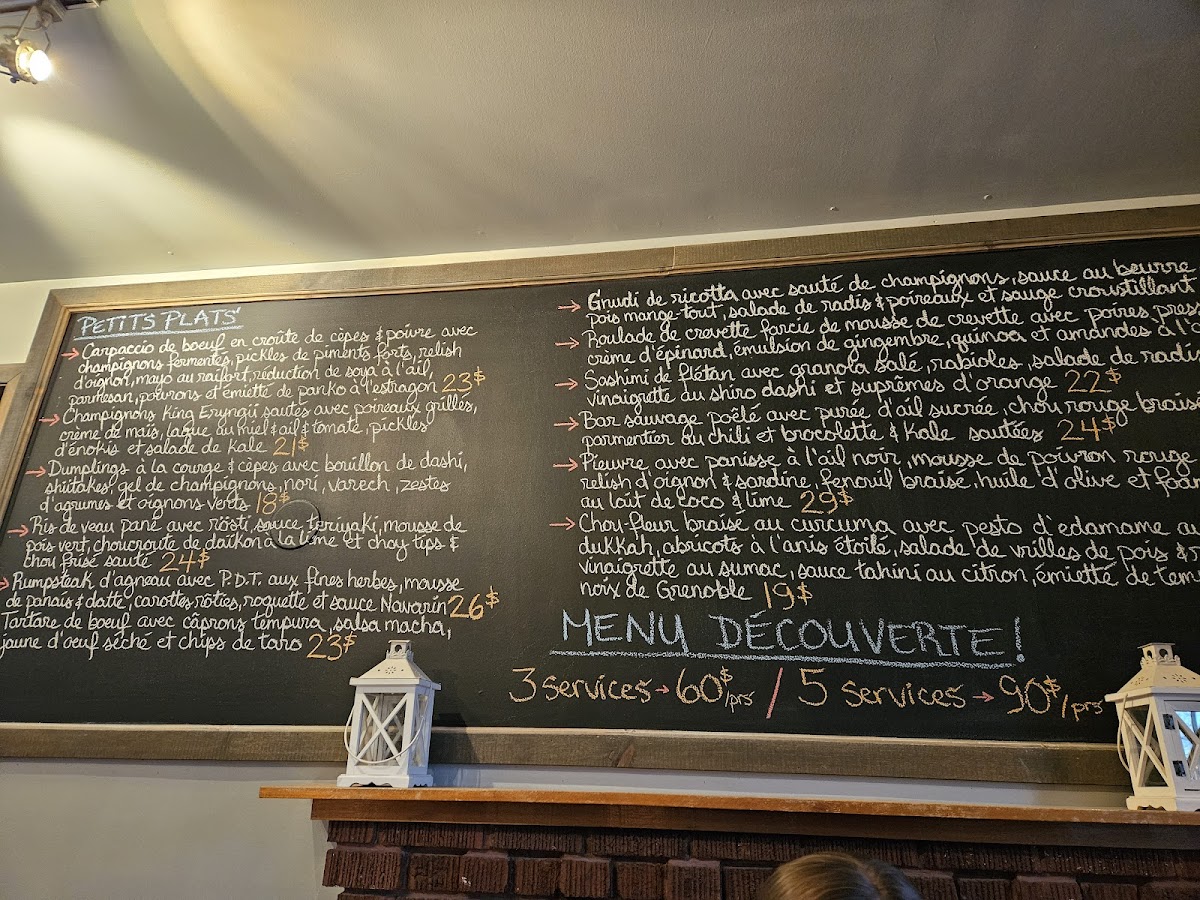 PETITS PLATS
→ Carpaccio de boeuf en croûte de cèpes & poivre avec
champignons fermentés, pickles de piments forts, relish
d'oignon, mayo au raifort, réduction de soya à l'ail,
parmesan, poivrons et émietté de panko à l'estragon 23$
→ Champignons King Eryngii sautés avec poireaux grillés,
crème de maïs, laque au miel & ail & tomate, pickles
d'énokis et salade de kale 21$
→ Dumplings à la courge & cèpes avec bouillon de dashi,
shiitakes, gel de champignons, nori, varech, zestes
d'agrumes et oignons verts 18$
→ Ris de veau pané avec rösti, sauce teriyaki, mousse de
pois vert, choucroute de daïkon à la lime et choy tips &
chou frisé sauté 24$
→ Rumpsteak d'agneau avec P.D.T. aux fines herbes, mousse
de panais & datte, carottes rôties, roquette et sauce Navarin 26$
Tartare de boeuf avec câprons tempura, salsa macha,
jaune d'oeuf séché et chips de taro 23$
→ Gnudi de ricotta avec sauté de champignons, sauce au beurre
pois mange-tout, salade de radis & poireaux et sauge croustillant
→ Roulade de crevette farcie de mousse de crevette avec poires, press
crème d'épinard, émulsion de gingembre, quinoa et amandes à l'é
→ Sashimi de flétan avec granola salé, rabioles, salade de radis
vinaigrette au shiro dashi et suprêmes d'orange 22$
→ Bar sauvage poêlé avec purée d'ail sucrée, chou rouge braisé
parmentier au chili et brocolette & kale sautées 24$
→ Pieuvre avec panisse à l'ail noir, mousse de poivron rouge
relish d'oignon & sardine, fenouil braisé, huile d'olive et foam
au lait de coco & lime 29$
→ Chou-fleur braisé au curcuma avec pesto d'edamame au
dukkah, abricots à l'anis étoilé, salade de vrilles de pois &
vinaigrette au sumac, sauce tahini au citron, émietté de tem
noix de Grenoble 19$
MENU DÉCOUVERTE!
3 services → 60$/prs / 5 services → 90$/prs